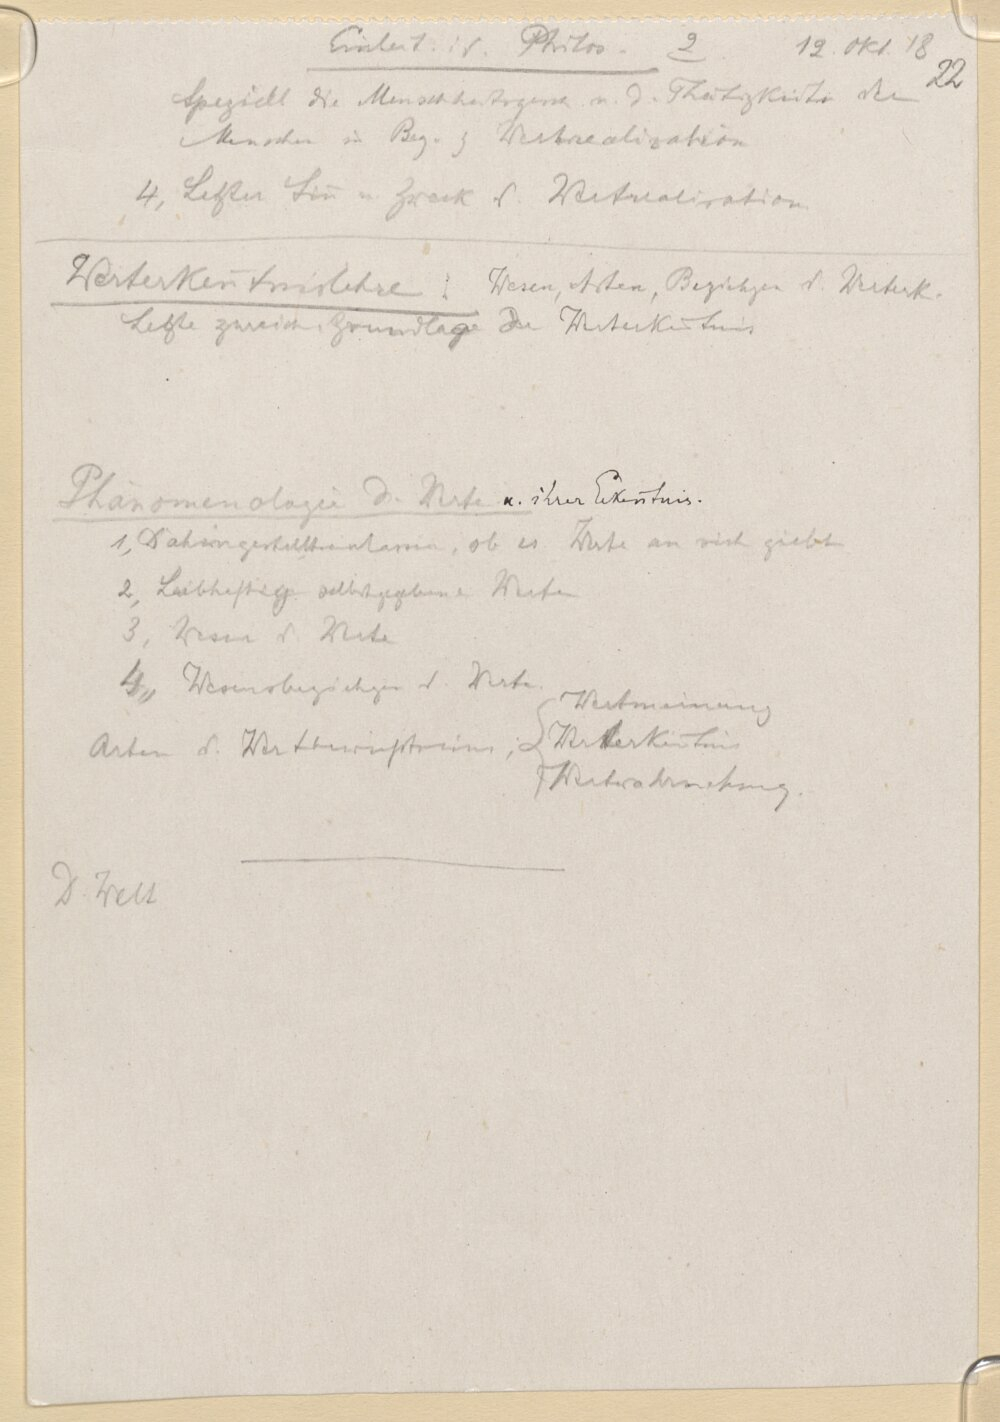 Einleit. i. d. Philos. 2 12. Okt. 18
22
Speziell die Menschheitsgesch. u. d. Thätigkeit der
Menschen in Bez. z. Wertrealisation
4, Letzter Sin̄ u. Zweck d. Wertrealisation
Werterken̄tnislehre : Wesen, Arten, Beziehgen d. Werterk.
Letzte zureich. Grundlage der Werterken̄tnis
Phänomenologie d. Werte u. ihrer Erken̄tnis.
1, Dahingestelltseinlassen, ob es Werte an sich giebt
2, Leibhaftig selbstgegebene Werte
3, Wesen d. Werte
4, Wesensbeziehgen d. Werte.
Arten d. Wertbewußtseins ; Wertmeinung
Werterken̄tnis
Wertwahrnehmung.
D. Welt